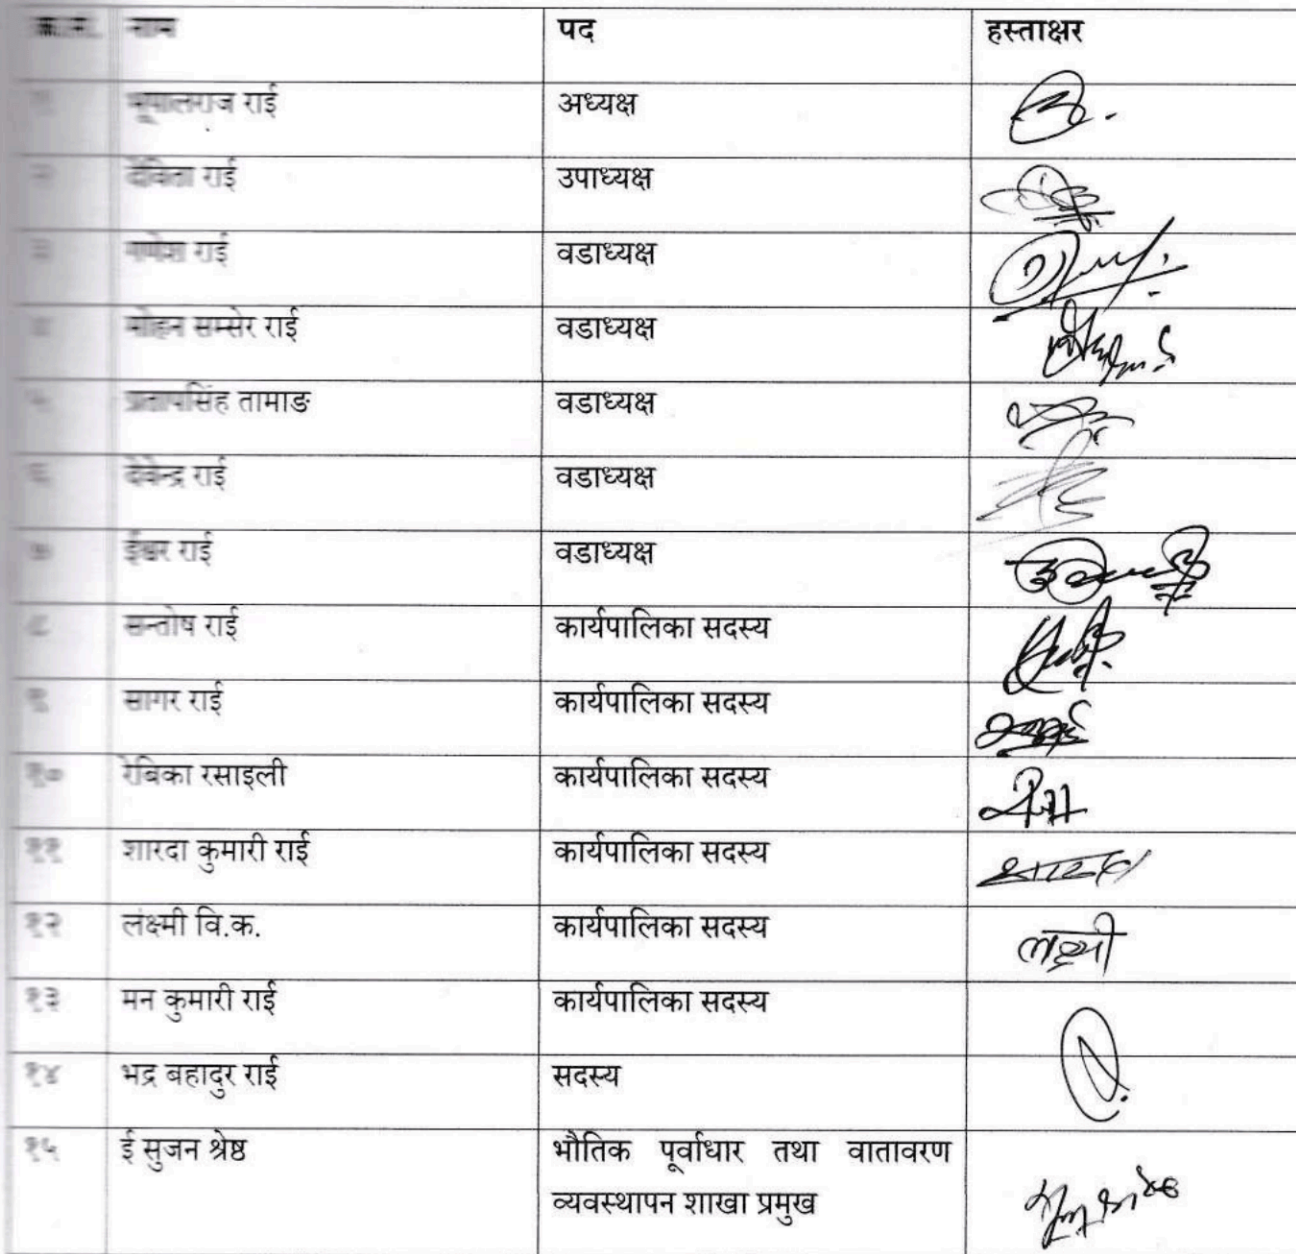 क्र.सं. नाम पद हस्ताक्षर
१ भूपालराज राई अध्यक्ष
२ देविता राई उपाध्यक्ष
३ गणेश राई वडाध्यक्ष
४ मोहन सम्सेर राई वडाध्यक्ष
५ प्रतापसिंह तामाङ वडाध्यक्ष
६ देवेन्द्र राई वडाध्यक्ष
७ ईश्वर राई वडाध्यक्ष
८ सन्तोष राई कार्यपालिका सदस्य
९ सागर राई कार्यपालिका सदस्य
१० रेबिका रसाइली कार्यपालिका सदस्य
११ शारदा कुमारी राई कार्यपालिका सदस्य शारदा
१२ लक्ष्मी वि.क. कार्यपालिका सदस्य लक्ष्मी
१३ मन कुमारी राई कार्यपालिका सदस्य
१४ भद्र बहादुर राई सदस्य
१५ ई सुजन श्रेष्ठ भौतिक पूर्वाधार तथा वातावरण
व्यवस्थापन शाखा प्रमुख